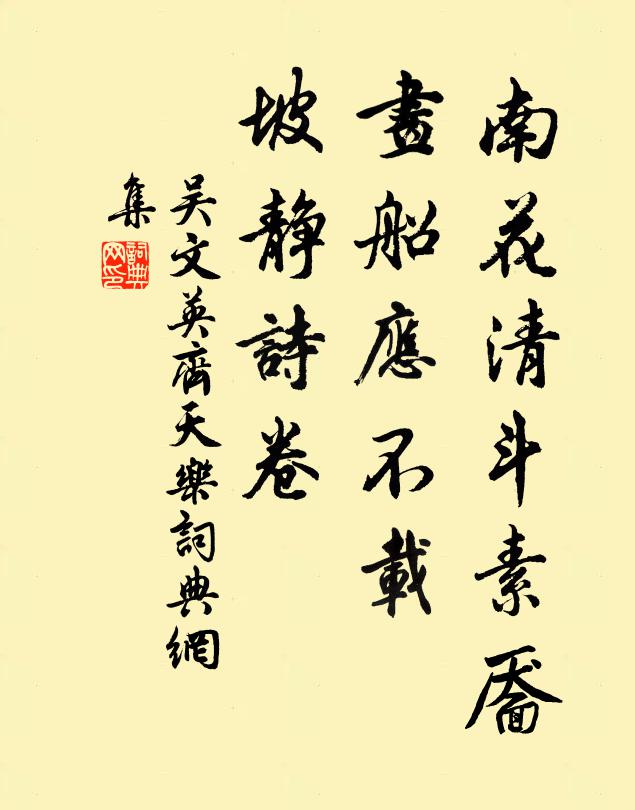 南花清斗素靥
畫船應不載
坡静詩卷
吴文英齊天樂詞典網
集
詞典
网印